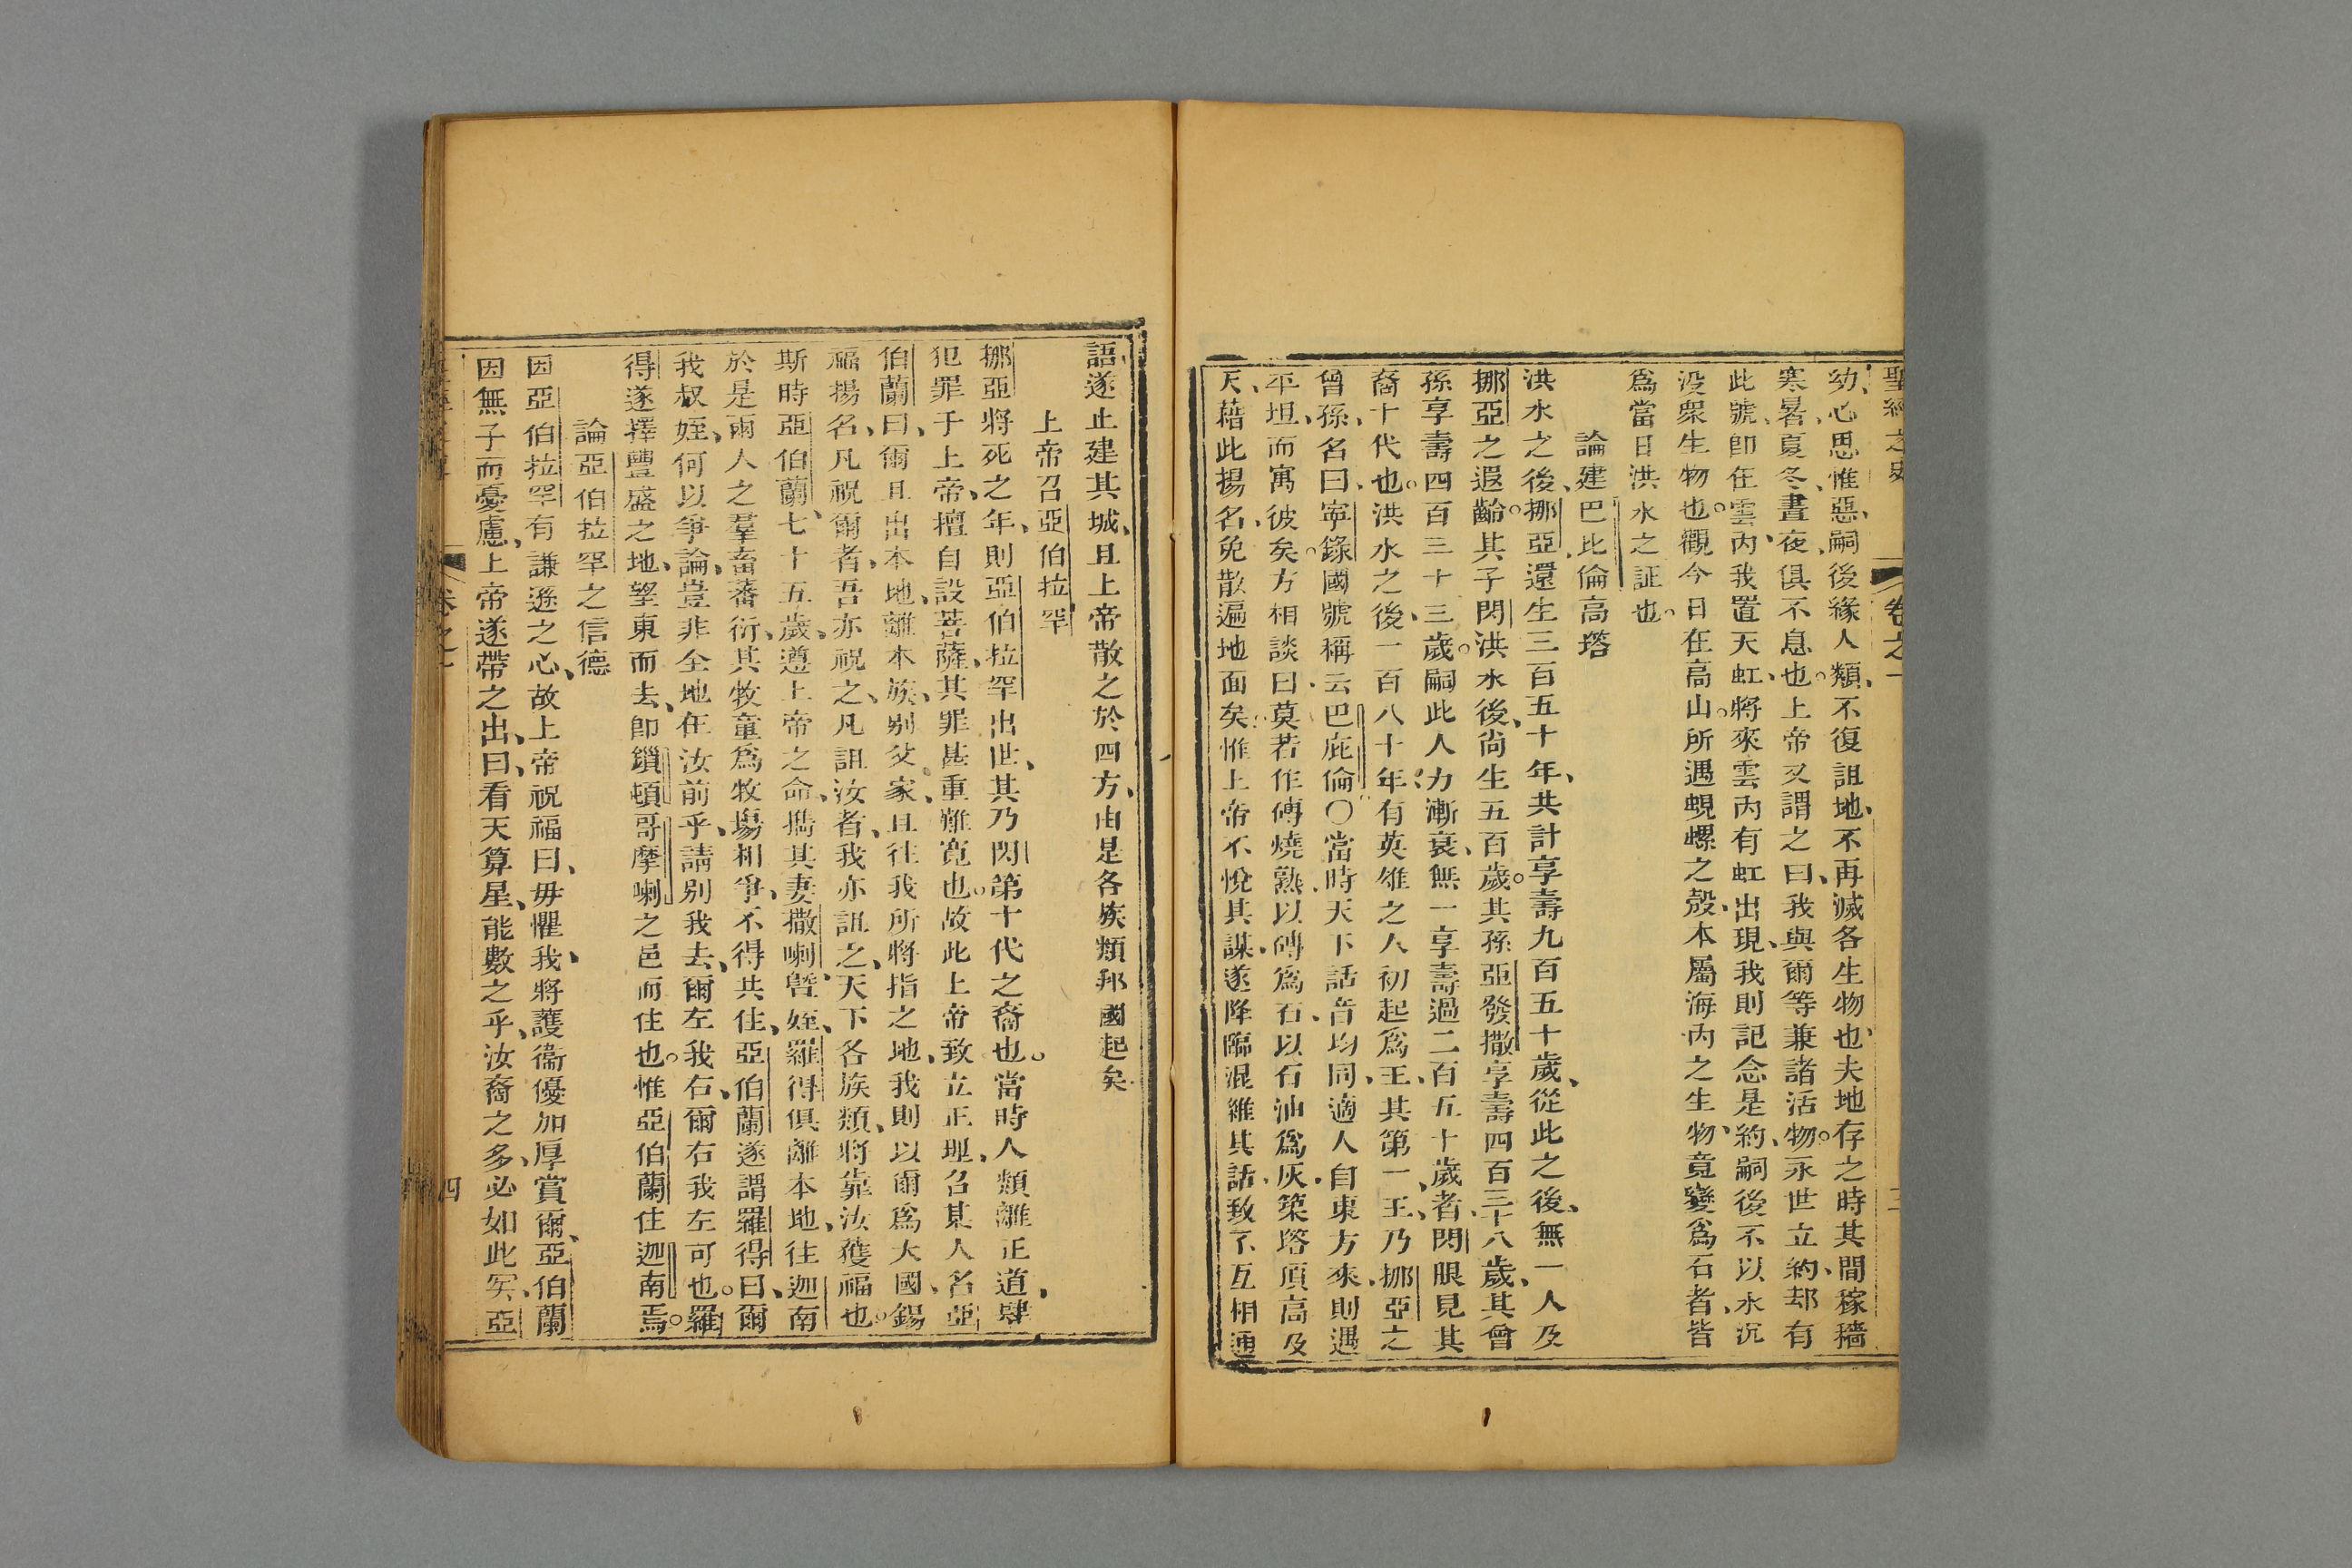 聖經之史 卷之一 三
幼、心思惟惡、嗣後緣人類、不復詛地、不再滅各生物也、夫地存之時其間稼穡
寒暑、夏冬、晝夜、俱不息也。上帝又謂之曰、我與爾等兼諸活物。永世立約、却有
此號、卽在雲內、我置天虹、將來雲內有虹出現、我則記念是約、嗣後不以水沉
没衆生物也。觀今日在高山。所遇蜆螺之殼、本屬海內之生物、竟變爲石者、皆
爲當日洪水之証也。
論建巴比倫高塔
洪水之後、挪亞還生三百五十年、共計享壽九百五十歲、從此之後、無一人及
挪亞之遐齡。其子閃洪水後、尙生五百歲。其孫亞發撒享壽四百三十八歲、其曾
孫享壽四百三十三歲。嗣此人力漸衰、無一享壽過二百五十歲者、閃眼見其
裔十代也。洪水之後、一百八十年、有英雄之人初起爲王、其第一王、乃挪亞之
曾孫、名曰、寧錄國號稱云巴庇倫〇當時天下話音均同、適人自東方來、則遇
平坦、而寓彼矣。方相談曰、莫若作磚燒熟、以磚爲石、以石油爲灰、築塔頂高及
天、藉此揚名、免散遍地面矣、惟上帝不悅其謀、遂降臨混雜其話、致不互相通
語、遂止建其城、且上帝散之於四方、由是各族類邦國起矣、
上帝召亞伯拉罕
挪亞將死之年、則亞伯拉罕出世、其乃閃第十代之裔也。當時人類離正道、肆
犯罪于上帝、擅自設菩薩、其罪甚重難寬也。故此上帝致立正理、召某人名亞
伯蘭曰、爾且出本地、離本族、別父家、且往我所將指之地、我則以爾爲大國、錫
福揚名、凡祝爾者、吾亦祝之、凡詛汝者、我亦詛之、天下各族類、將靠汝獲福也。
斯時亞伯蘭、七十五歲、遵上帝之命、携其妻撒喇曁姪、羅得俱離本地、往迦南
於是兩人之羣畜蕃衍、其牧童爲牧塲相爭、不得共住、亞伯蘭遂謂羅得曰、爾
我叔姪、何以爭論、豈非全地在汝前乎、請別我去、爾左我右、爾右我左可也。羅
得遂擇豐盛之地、望東而去、卽鎖頓哥摩喇之邑而住也。惟亞伯蘭住迦南焉。
論亞伯拉罕之信德
因亞伯拉罕有謙遜之心、故上帝祝福曰、毋懼、我將護衞優加厚賞爾、亞伯蘭
因無子而憂慮、上帝遂帶之出、曰、看天算星、能數之乎、汝裔之多、必如此矣、亞
卷之一 四